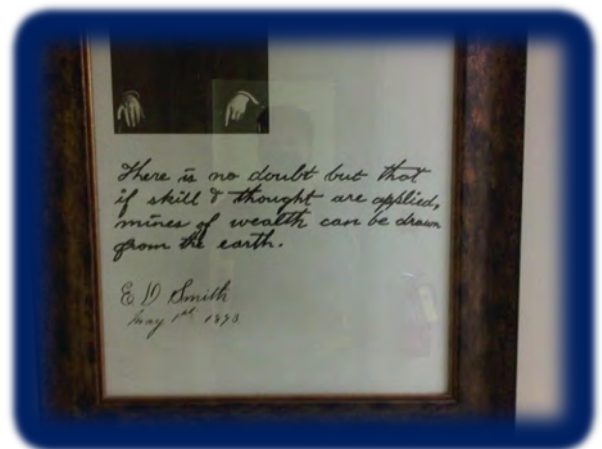 There is no doubt but that
if skill & thought are applied,
mines of wealth can be drawn
from the earth.
E D Smith
May 1st 1890